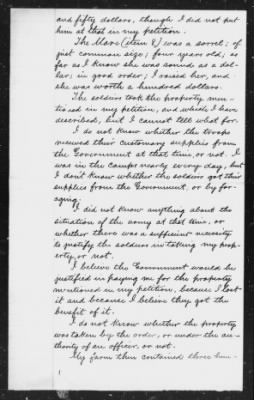 and fifty dollars, though I did not put
him at that in my petition.
The Mare (item 8) was a sorrel; of
just common size; four years old; as
far as I know she was sound as a dol-
lar; in good order; I raised her, and
she was worth a hundred dollars.
The soldiers took the property men-
tioned in my petition, and which I have
described, but I cannot tell what for.
I do not know whether the troops
received their customary supplies from
the Government at that time, or not. I
was in the camps nearly every day, but
I don't know whether the soldiers got their
supplies from the Government, or by for-
aging.
I did not know anything about the
situation of the army at that time, or
whether there was a sufficient necessity
to justify the soldiers in taking my prop-
erty, or not.
I believe the Government would be
justified in paying me for the property
mentioned in my petition, because I lost
it and because I believe they got the
benefit of it.
I do not know whether the property
was taken by the order, or under the au-
thority of an officer, or not.
My farm then contained three hun-